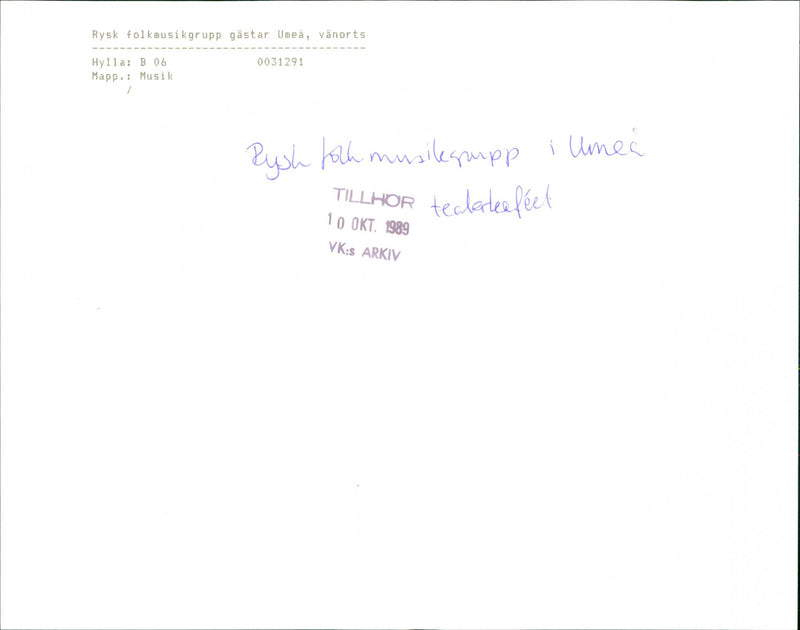 Rysk folkmusikgrupp gästar Umeå, vänorts
--------------------------------------------
Hylla: B 06 0031291
Mapp.: Musik
/
Rysk folkmusikgrupp i Umeå
TILLHÖR teaterkaféet
10 OKT. 1989
VK:s ARKIV